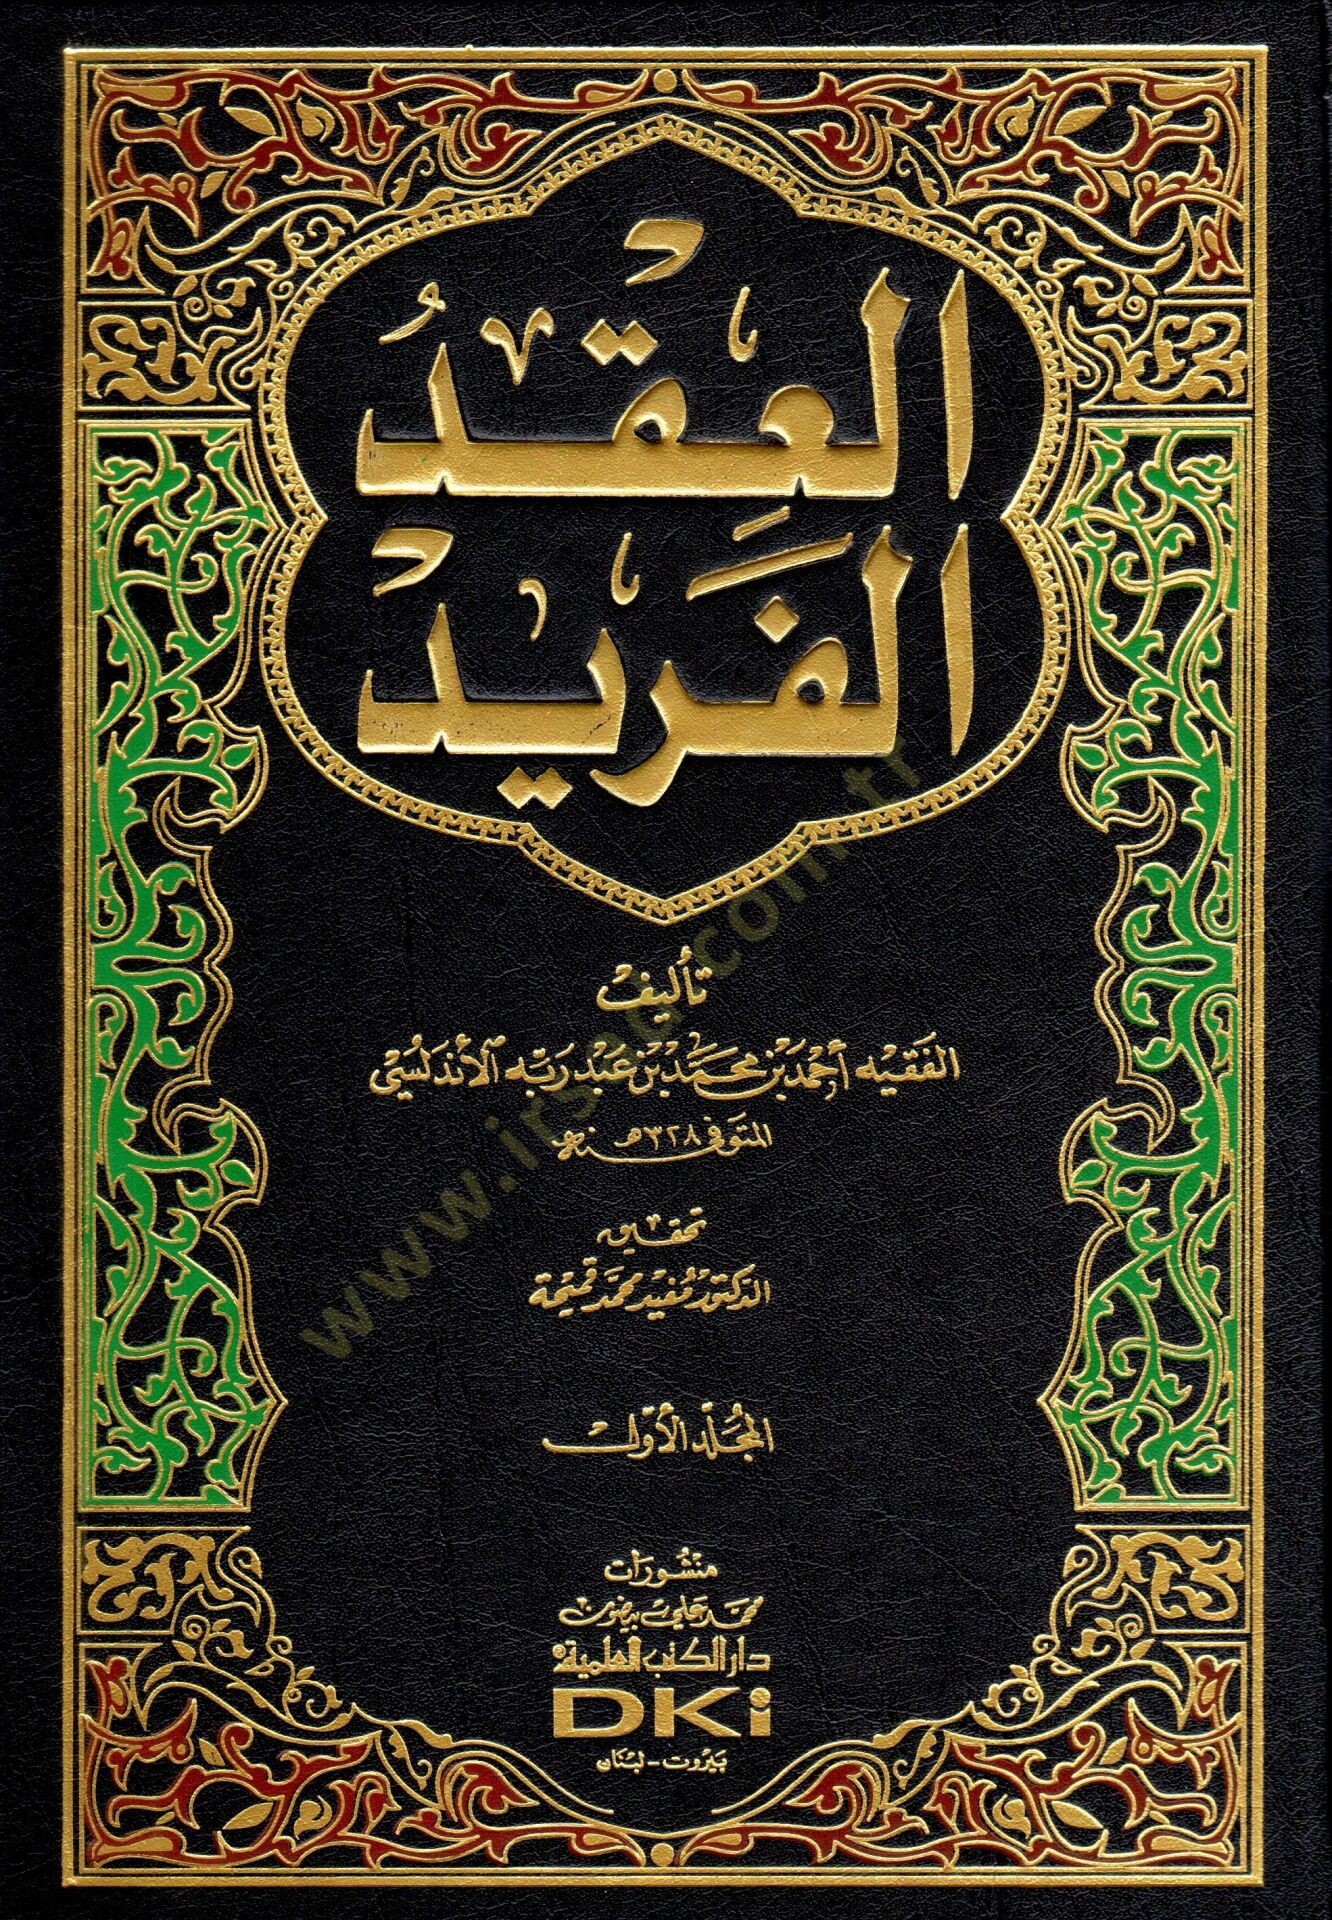 العِقْدُ
الفَرِيدْ
تأليف
الفَقيه أحمَد بن محمَّد بن عَبْد رَبّه الأندَلسيّ
المتوفى سنة ٣٢٨هـ
تحقيق
الدكتور مفيد محمد قميحة
المجلّد الأوّل
منشورات
محمد علي بيضون
دار الكتب العلمية
DKi
بَيروت - لبنان
www.irsad.com.tr